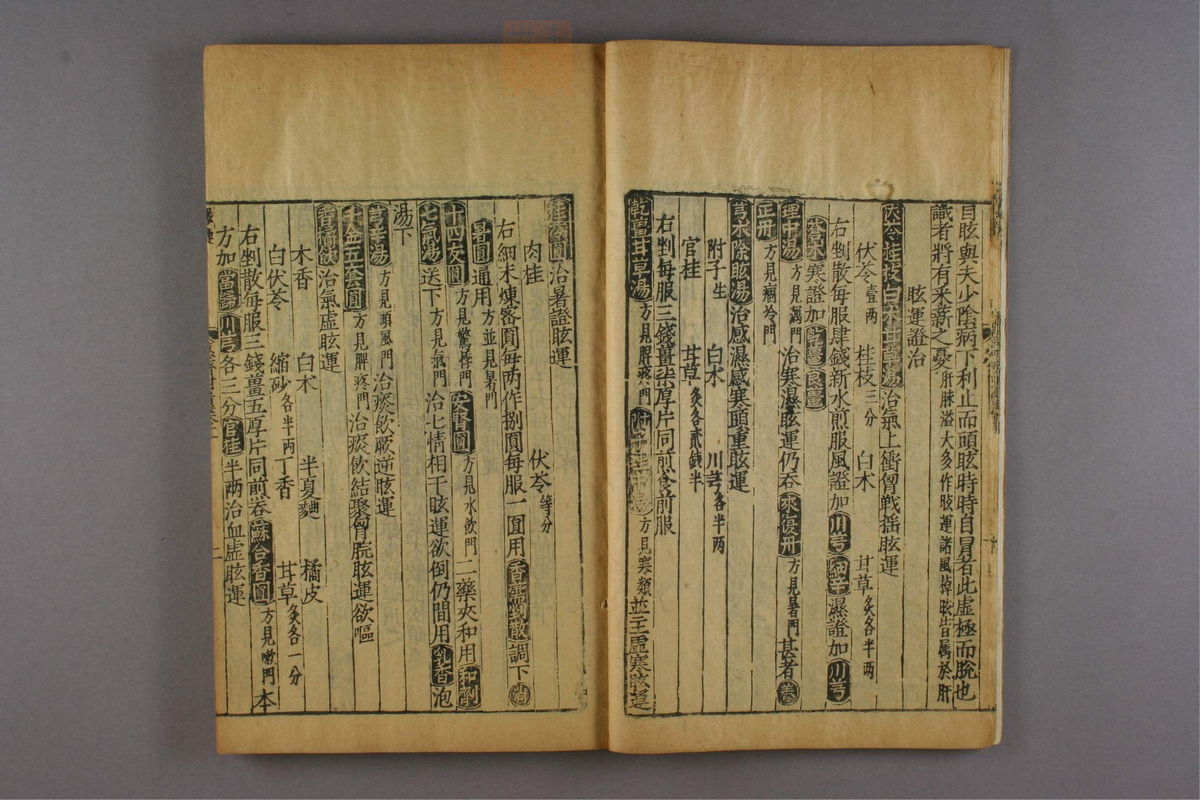 目眩與夫少陰病下利止而頭眩時時自冒者此虛極而脫也
識者將有采薪之憂肝脉溢大多作眩運諸風掉眩皆属於肝
眩運證治
茯苓桂枝白术甘草湯治氣上衝胷戰揺眩運
伏苓壹两 桂枝三分 白术 甘草炙各半两
右剉散每服肆錢新水煎服風證加川芎細辛濕證加川芎
蒼术寒證加乾薑良薑
理中湯方見厲門治寒濕眩運仍吞來復丹方見暑門甚者養
正丹方見痼冷門
芎术除眩湯治感濕感寒頭重眩運
附子生 白术 川芎各半两
官桂 甘草炙各貳錢半
右剉每服三錢薑柒厚片同煎食前服
乾薑甘草湯方見脾疼門附子理中湯方見寒類並主虛寒眩運
桂苓圓治暑證眩運
肉桂 伏苓等分
右細末煉蜜圓每两作捌圓每服一圓用香薷散調下消
暑圓通用方並見暑門
十四友圓方見驚悸門安腎圓方見水飲門二藥夾和用和劑
七氣湯送下方見氣門治七情相干眩運欲倒仍間用乳香泡
湯下
芎辛湯方見頭風門治痰飲厥逆眩運
千金五套圓方見脾疼門治痰飲結聚胷脘眩運欲嘔
香橘飲治氣虛眩運
木香 白术 半夏麯 橘皮
白伏苓 縮砂各半两 丁香 甘草炙各一分
右剉散每服三錢薑五厚片同煎吞蘇合香圓方見嗽門本
方加當歸川芎各三分官桂半两治血虛眩運
二